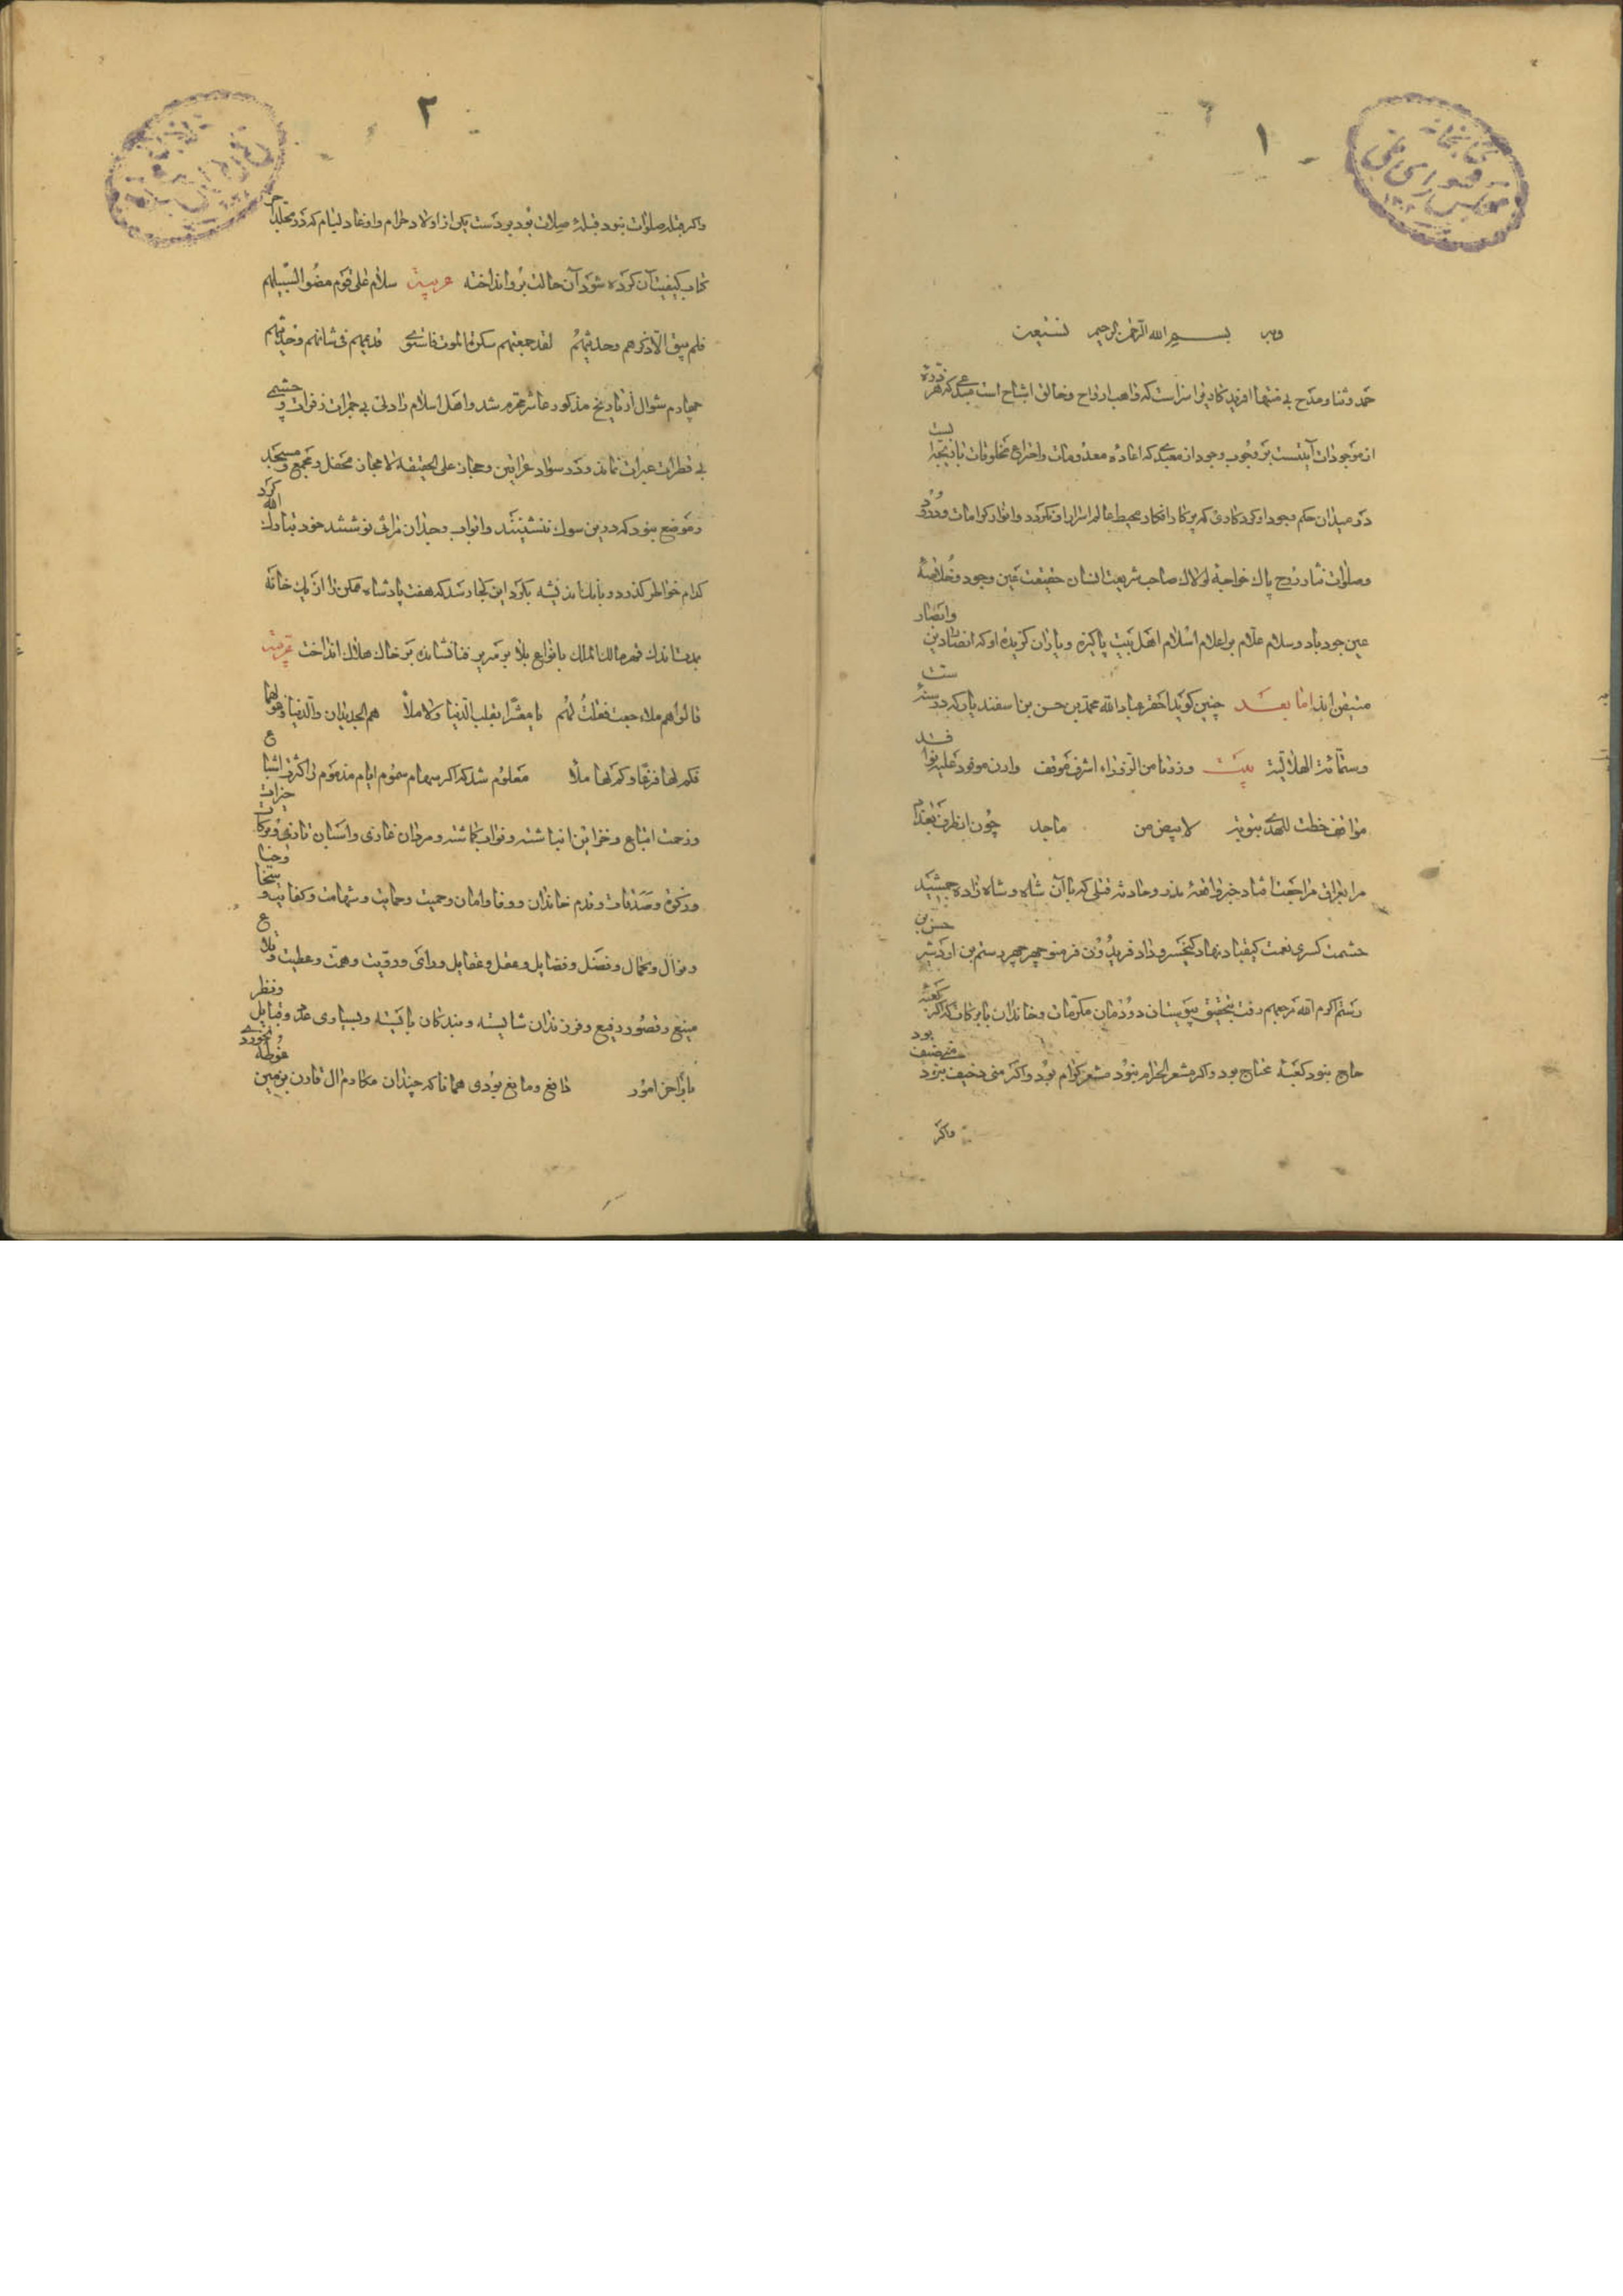 ١
وبه بسم الله الرحمن الرحیم نستعین
حمد و ثنا و مدح بی منتها آفریدکاریرا سزاست که واهب ارواح و خالق اشباح است مبدعی که هر ذره
از موجودات آیتیست بر وجوب وجود او معیدی که اعاده معدومات و اختراع مخلوقات بازیچه ایست
در میدان حکم وجود او کردکاری که پرکار افکار محیط عالم اسرار او نکردد و انوار کرامات و درود
و صلوات نثار روح پاک خواجهٔ لولاک صاحب شریعت انسان حقیقت عین وجود و خلاصهٔ
عین جود باد و سلام علام بر اعلام اسلام اهل بیت پاکیزه و یاران کزیده او که انصار دین و انصار
متیقن اند اما بعد چنین کوید احقر عباد الله محمد بن حسن بن اسفندیار که در سنهٔ ست
و ستمائة الهلالیة بیت وزرنا من الزوراء اشرف موقف وارن موفود علیه لوافد
مواقف خطت للهدی نبویة لابیض من ماجد چون از طرف بغداد
مرا بعراق مراجعت افتاد خبر واقعهٔ بدر و حادثه قتلی که با آن شاه و شاه زاده جمشید
حشمت کسری نعمت کیقباد نهاد کیخسرو داد فریدون فر منوچهر چهر رستم بن اردشیر حسن بن
رستم اکرم الله مرجعهم رفت بتحقیق پیوست آن دودمان مکرمات و خاندان با برکات که اگر کعبهٔ
حاج نبود کعبهٔ محتاج بود و اکر مشعر الحرام نبود مشعر کرام بود و اکر منی خیف نبود منی ضیف بود
واکر
٢
واکر قبله صلوات نبود قبلهٔ صلات بود بر دست یکی از اولاد حرام و اوغاد لیام که در مجلد آخر
کتاب کیفیت آن کرده شود آن حالت بر وا نداخته عربیة سلام علی قوم مضوا لسبیلهم
فلم یبق الا ذکرهم و حدیثهم لقد جمعتهم سکرة الموت فاستوی قدیمهم فی شانهم و حدیثهم
چهارم شوال از تاریخ مذکور عاشر محرم شد و اهل اسلام را دلی بی جمرات زفرات و چشمی
بی قطرات عبرات نماند و در سواد عراقین و حجاز علی الحقیقه لا مجاز محفل و مجمع و مسجد
و موضع نبود که در بن سوک ننشینند و ابواب و جدران مراثی نوشتند خود تبارک الله کرد
کدام خواطر کذرد و باک اندیشه بکرد این کجا رسد که هفت پادشاه ممکن را از یک خانه
بمدت اندک قهر مالک الملک بانواع بلا بر سریر فنا نشانده بر خاک هلاک انداخت عربیة
قالوا هم ملاء جمعت فقلت لهم یا معشرا بقلب الدنیا ولا ملا هم الجدیدان و الدنیا و هولهما
فکم لها فرغا و کم لها ملا معلوم شد که اکر سهام سموم ایام مذموم را کثرت اشیاع
و زحمت اتباع و خزاین انباشته و نواب کماشته و مردان غازی و اسبان تازی و برکات خیرات
و زکوة و صدقات و قدم خاندان و وفا و امان و حمیت و حمایت و شهامت و کفایت و سخا و حیا
و نوال و کمال و فضل و فضایل و عقل و عقایل و رای و رویت و همت و عطیت و قلاع
منیع و قصور رفیع و فرزندان شایسته و بندکان بایسته و بسیاری عدد و قبایل و نظر
باواخر امور دافع و مانع بودی همانا که چندان مکارم ال قارن بزمین فرو نخوردی غوطهٔ